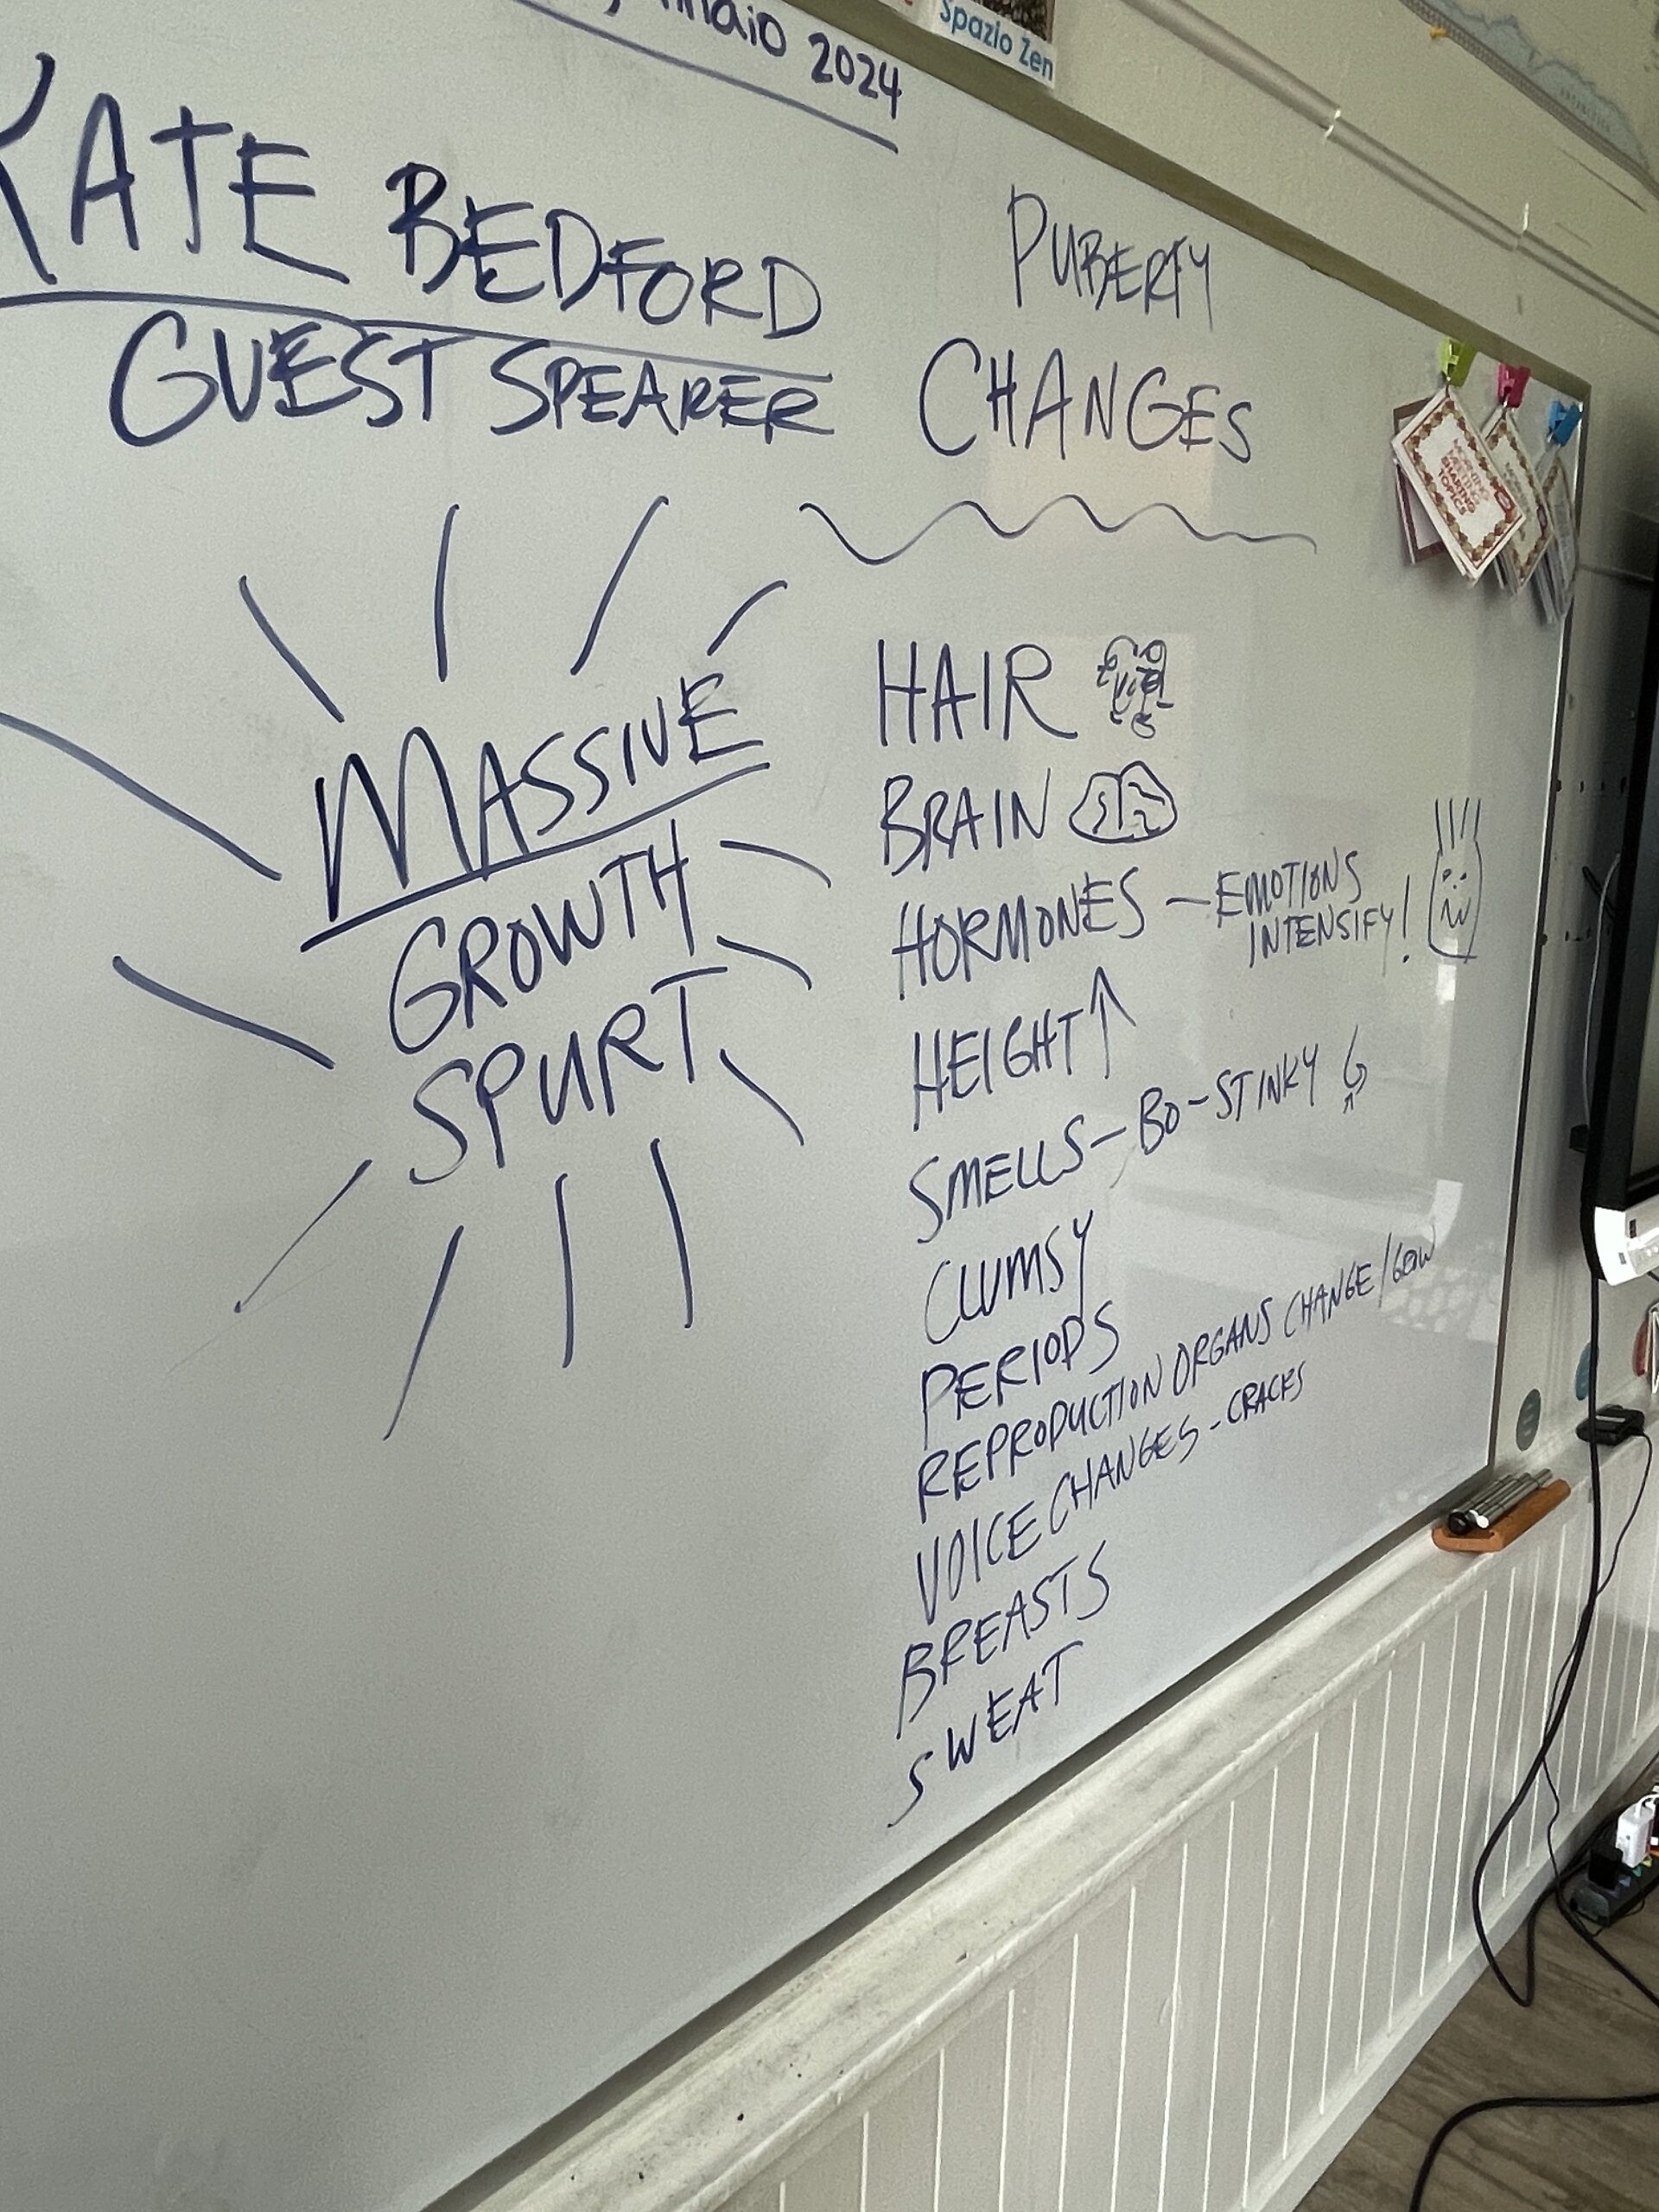 2024
Spazio Zen
KATE BEDFORD
GUEST SPEAKER
MASSIVE
GROWTH
SPURT
PUBERTY
CHANGES
HAIR
BRAIN
HORMONES - EMOTIONS
INTENSIFY!
HEIGHT ↑
SMELLS - BO - STINKY
CLUMSY
PERIODS
REPRODUCTION ORGANS CHANGE / GROW
VOICE CHANGES - CRACKS
BREASTS
SWEAT
MORNING
MEETING
SHARING
TOPICS